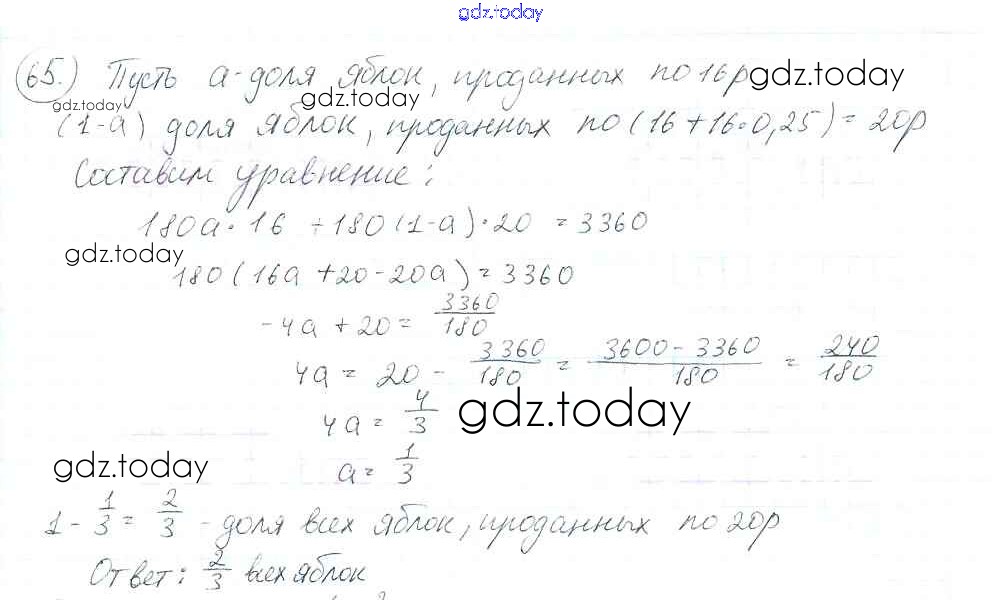 gdz.today
65.) Пусть а-доля яблок, проданных по 16р gdz.today
gdz.today gdz.today
(1-а) доля яблок, проданных по (16+16·0,25)=20р
Составим уравнение:
180а·16 +180(1-а)·20 =3360
gdz.today
180(16а+20-20а)=3360
-4а+20= 3360/180
4а= 20- 3360/180 = 3600-3360/180 = 240/180
4а= 4/3 gdz.today
gdz.today
а= 1/3
1- 1/3 = 2/3 -доля всех яблок, проданных по 20р
Ответ: 2/3 всех яблок